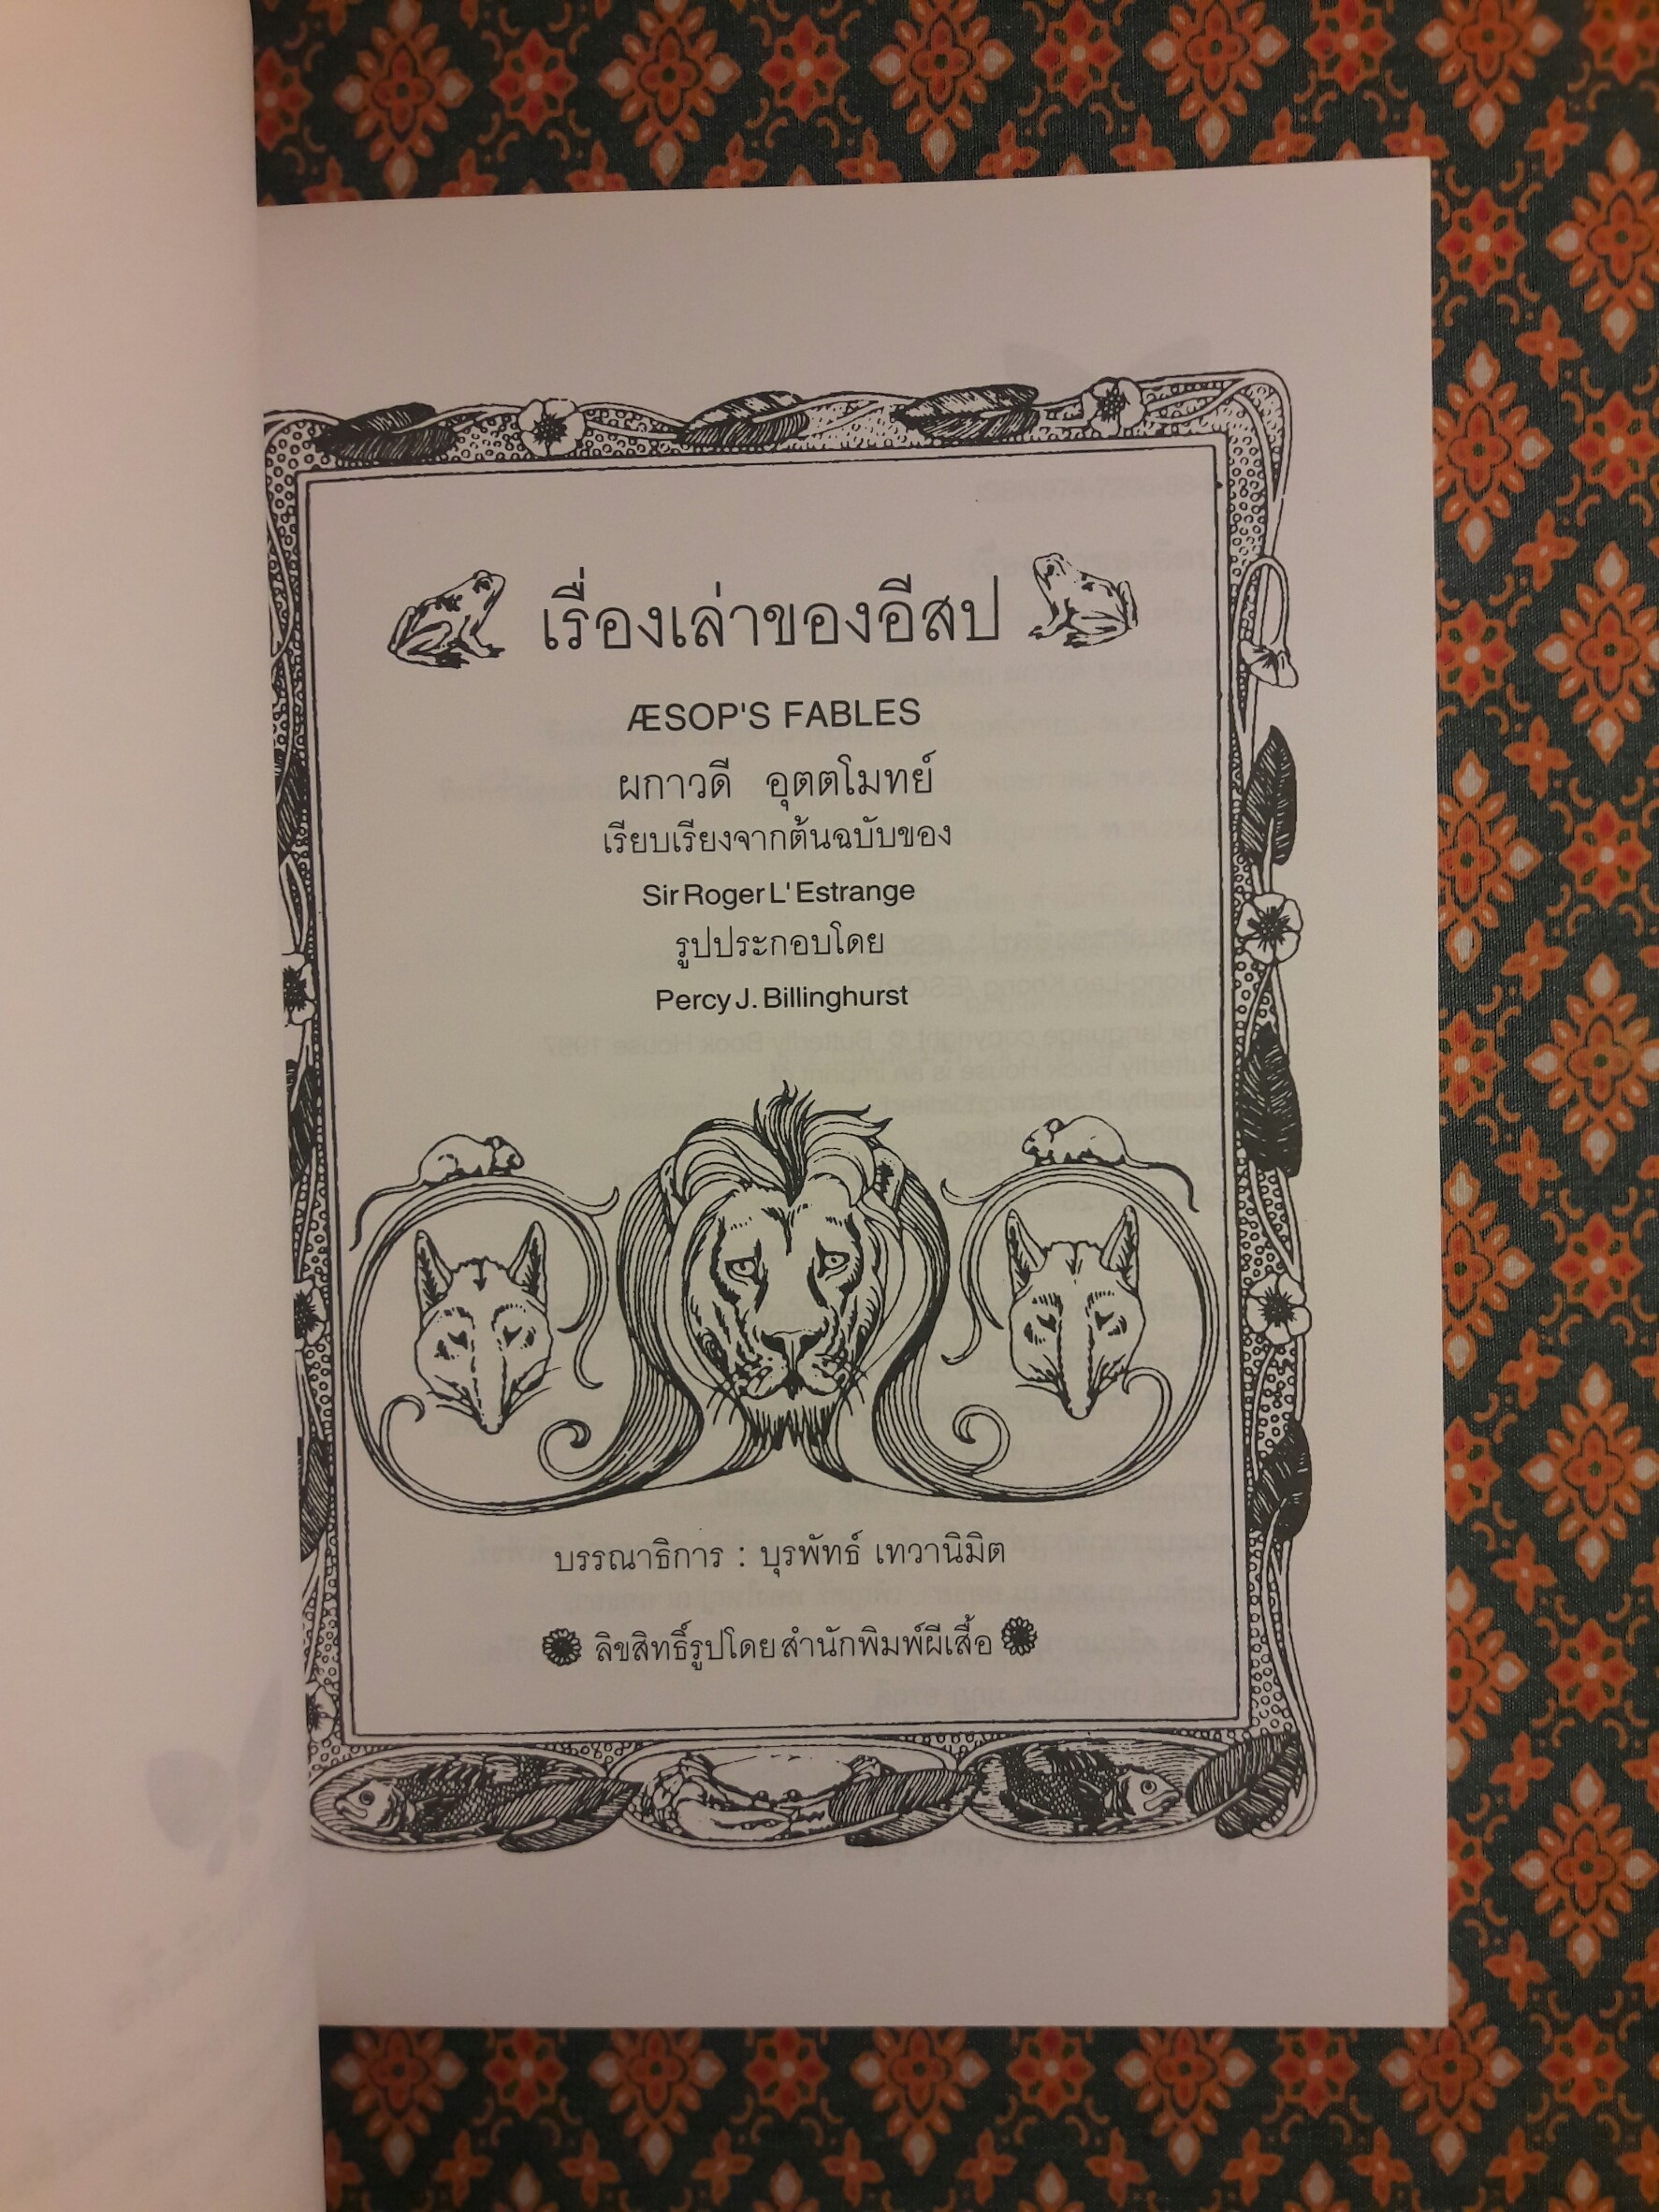 เรื่องเล่าของอีสป
ÆSOP'S FABLES
ผกาวดี อุตตโมทย์
เรียบเรียงจากต้นฉบับของ
Sir Roger L' Estrange
รูปประกอบโดย
Percy J. Billinghurst
บรรณาธิการ : บุรพัทธ์ เทวานิมิต
ลิขสิทธิ์รูปโดยสำนักพิมพ์ผีเสื้อ